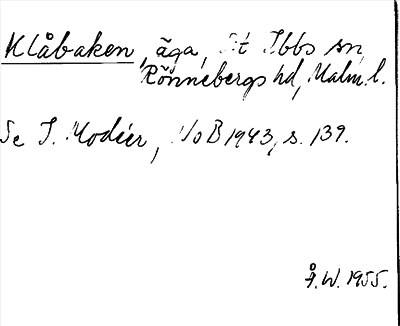 Klåbaken, äga, St Ibbs sn,
Rönnebergs hd, Malm. l.
Se I. Modéer, NoB 1943, s. 139.
Å.W. 1955.